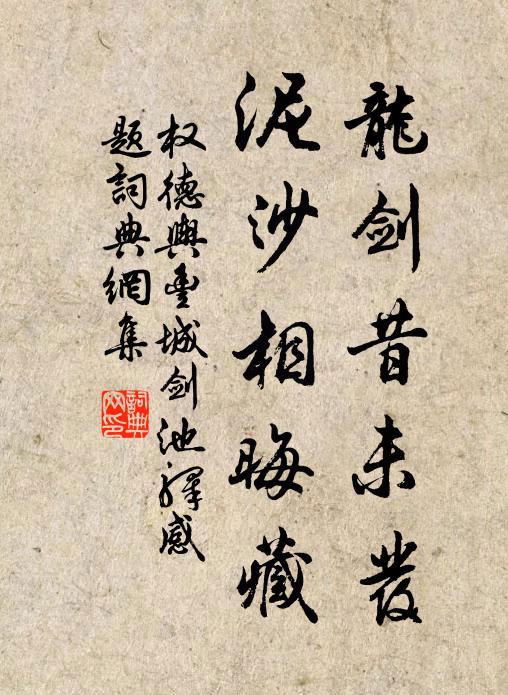 龍劍昔未發
泥沙相晦藏
权德輿豐城劍池驛感
題詞典網集
詞典网印